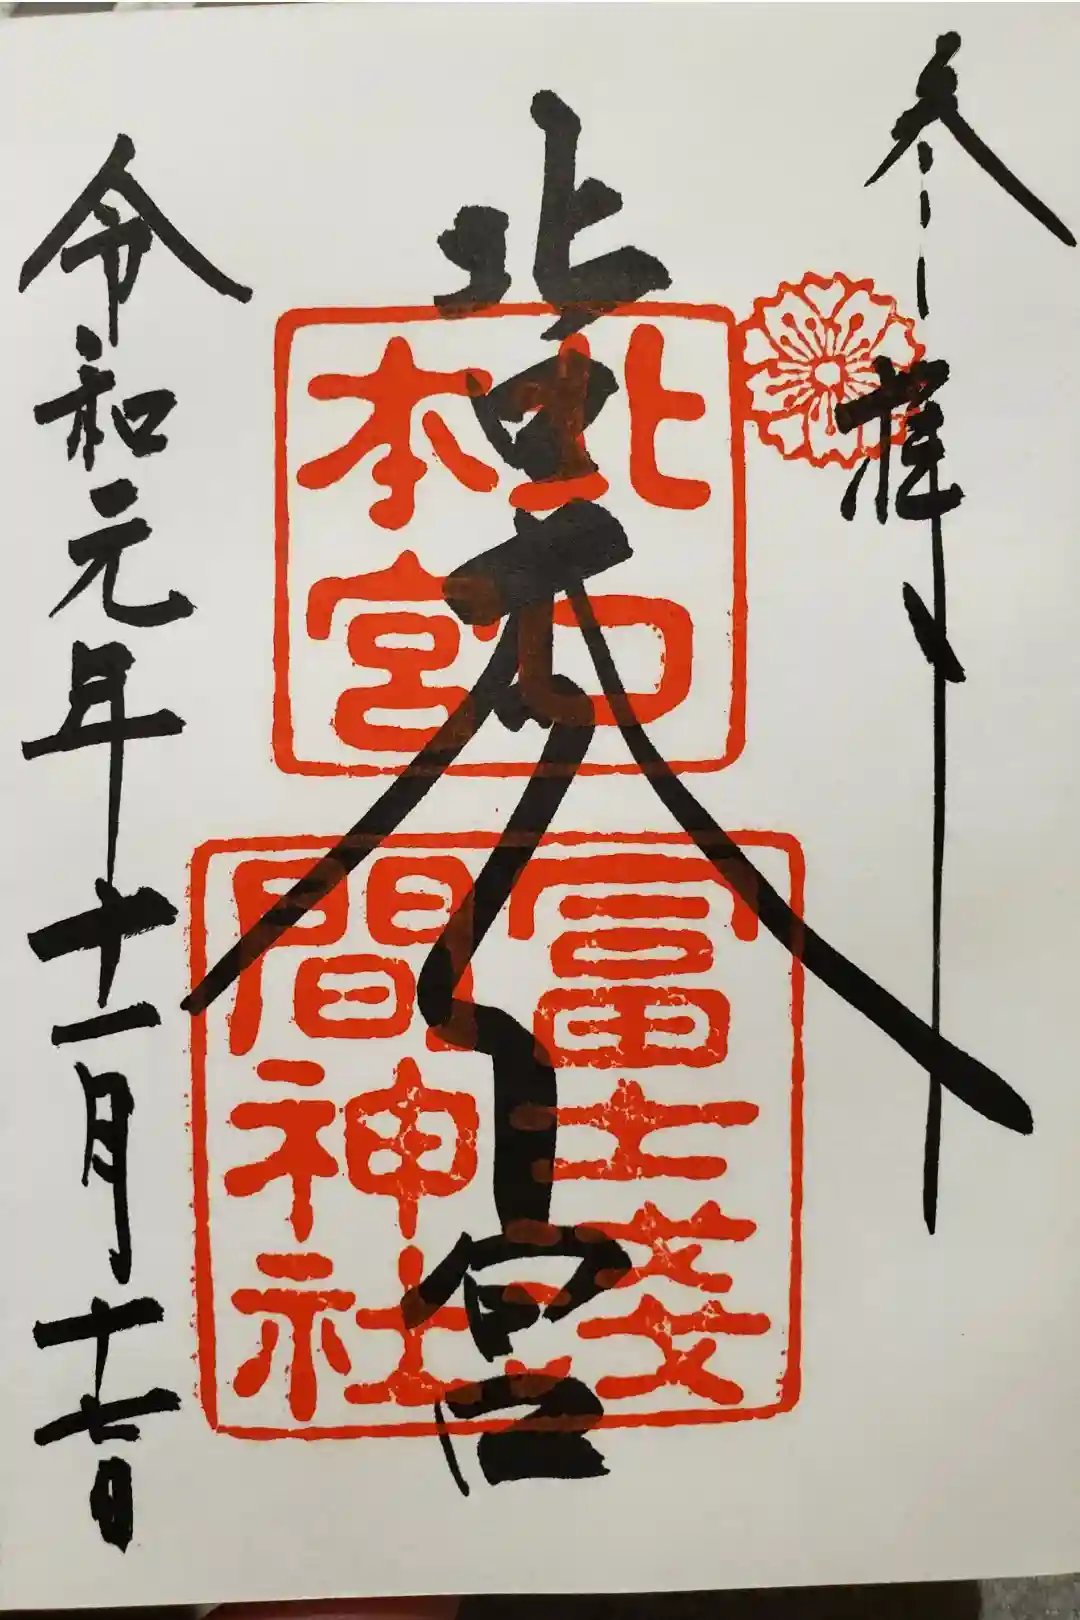 参拝
北口本宮
北口
本宮
冨士淺
間神社
令和元年十一月十七日